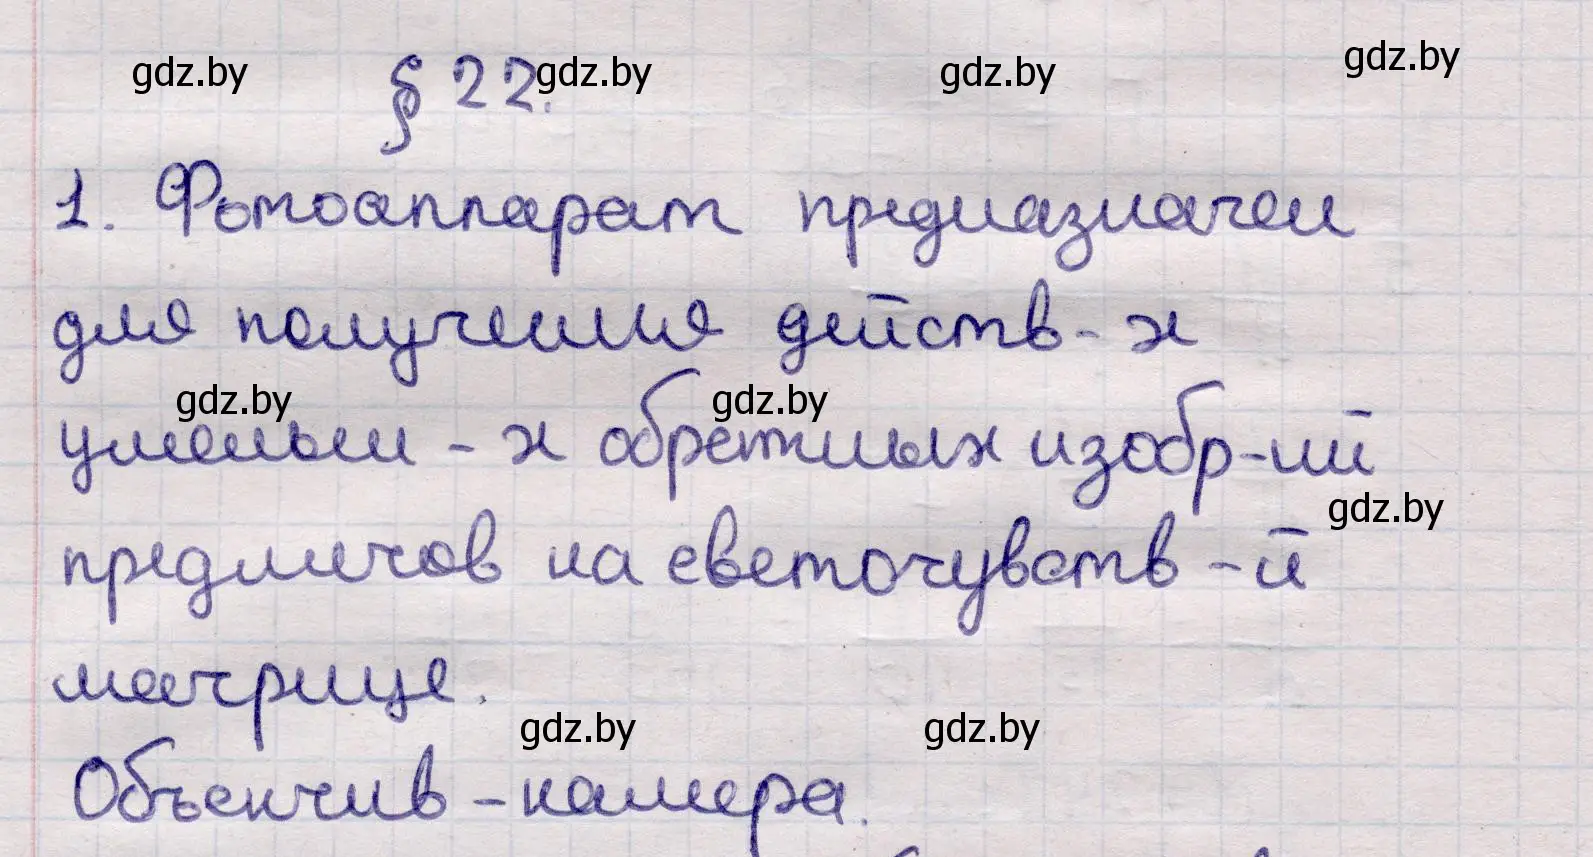 § 22.
1. Фотоаппарат предназначен
для получения действ-х
уменьш-х обратных изобр-ий
предметов на светочувств-й
матрице.
Объектив-камера.
gdz.by gdz.by gdz.by gdz.by
gdz.by gdz.by
gdz.by
gdz.by gdz.by